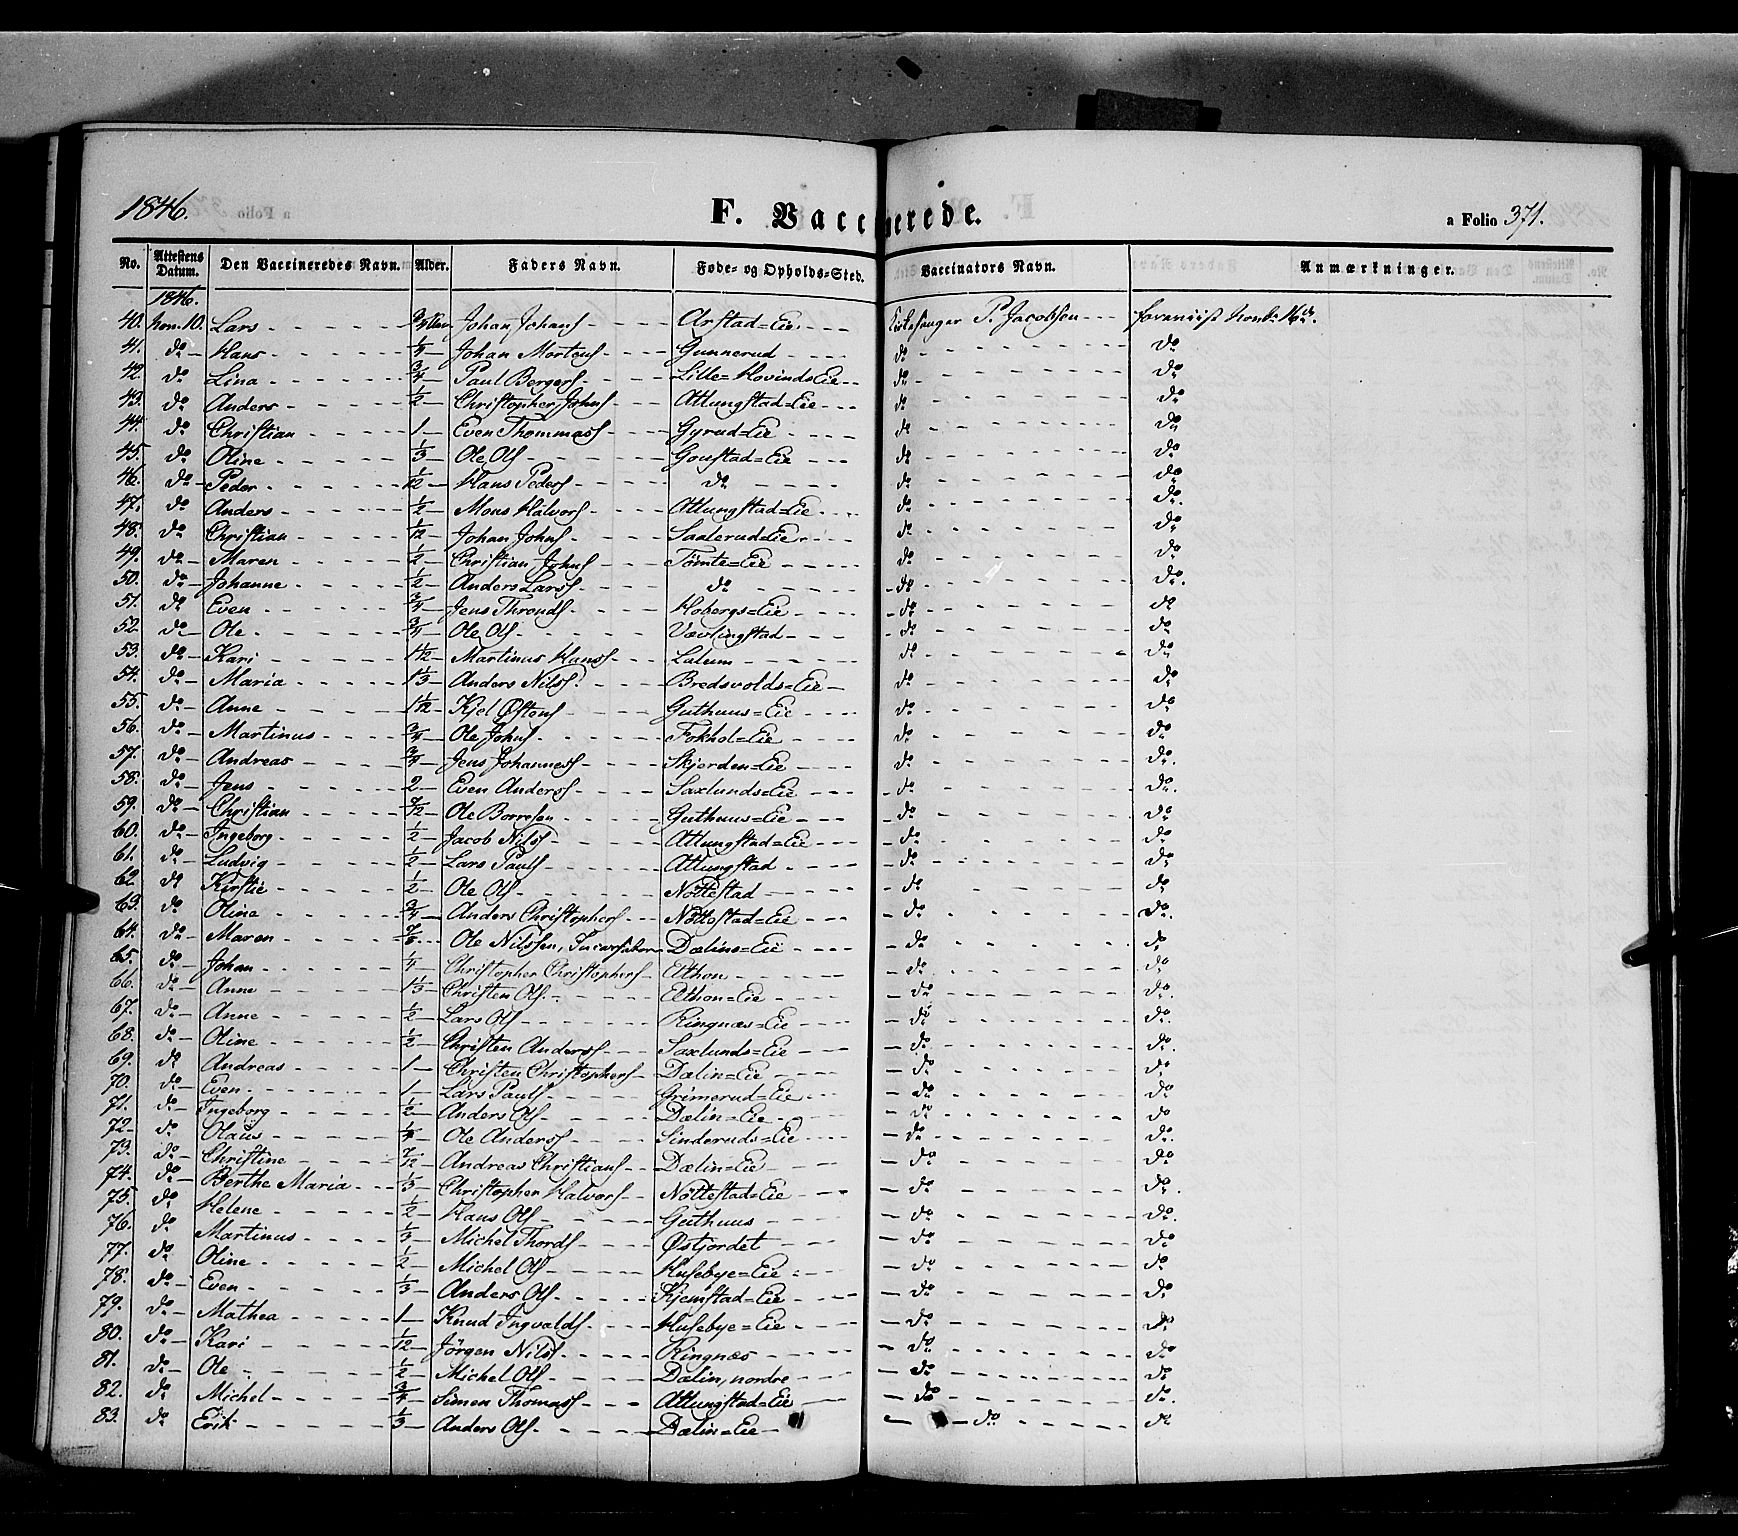 1846. F. Vaccinerede. a Folio 371.
No. Attestens Datum. Den Vaccineredes Navn. Alder. Faders Navn. Føde- og Opholds-Sted. Vaccinators Navn. Anmærkninger.
1846.
40. Nov. 10. Lars 3/4 Johan Johans Arstad=Eie Kirkesanger P. Jacobsen foreviist
41. do Hans 1/4 Johan Mortens Gunnerud do do
42. do Lina 3/4 Paul Bergers Lille=Hovinds Eie do do
43. do Anders 1/2 Christopher Johns Atlungstad=Eie do do
44. do Christian 1 Even Thommas Gyrud=Eie do do
45. do Oline 1/3 Ole Ols Goustad=Eie do do
46. do Peder 1/12 Hans Peders do do do
47. do Anders 1/2 Mons Halvors Atlungstad=Eie do do
48. do Christian 1/12 Johan Johns Saalerud=Eie do do
49. do Maren 1/2 Christian Johns Tømte=Eie do do
50. do Johanne 1/2 Anders Lars do do do
51. do Even 3/4 Jens Thronds Hobergs=Eie do do
52. do Ole 3/4 Ole Ols Vævlingstad do do
53. do Kari 1 1/12 Martinus Hans Lalum do do
54. do Maria 1 1/3 Anders Nils Bredsvolds=Eie do do
55. do Anne 1 1/12 Kjel Østens Guthuus=Eie do do
56. do Martinus 3/4 Ole Johns Fokhol=Eie do do
57. do Andreas 3/4 Jens Johannes Skjerden=Eie do do
58. do Jens 2 Even Anders Saxlunds=Eie do do
59. do Christian 7/12 Ole Borresen Guthuus=Eie do do
60. do Ingeborg 1/2 Jacob Nils Atlungstad=Eie do do
61. do Ludvig 1/2 Lars Pauls Atlungstad do do
62 do Kirstie 1/2 Ole Ols Nøttestad do do
63. do Oline 3/4 Anders Christophers Nøttestad=Eie do do
64. do Maren Ole Nilssen, Dælins=Eie do do
65. do Johan 1/4 Christopher Christophers Elthon do do
66. do Anne 1 1/3 Christen Ols Elthon=Eie do do
67. do Anne 1/2 Lars Ols Ringnæs=Eie do do
68. do Oline 1/2 Christen Anders Saxlunds=Eie do do
69. do Andreas 1 Christen Christophers Dælin=Eie do do
70. do Even 1 Lars Pauls Grimerud=Eie do do
71. do Ingeborg 1/2 Anders Ols Dælin=Eie do do
72 do Olaus 1/4 Ole Anders Sinderuds=Eie do do
73. do Christine 7/12 Andreas Christians Dælin=Eie do do
74. do Berthe Maria 1/3 Christopher Halvors Nøttestad=Eie do do
75. do Helene 1/2 Hans Ols Guthuus do do
76. do Martinus 1/3 Michel Thords Østjordet do do
77. do Oline 1/2 Michel Ols Husebye=Eie do do
78. do Even 1/3 Anders Ols Kjemstad=Eie do do
79. do Mathea 1 Knud Ingvalds Husebye=Eie do do
80. do Kari 1/12 Jörgen Nils Ringnæs do do
81. do Ole 1/2 Michel Ols Dælin, nordre do do
82. do Michel 3/4 Simen Thomas Atlungstad=Eie do do
83. do Erik 1/3 Anders Ols Dælin=Eie do do